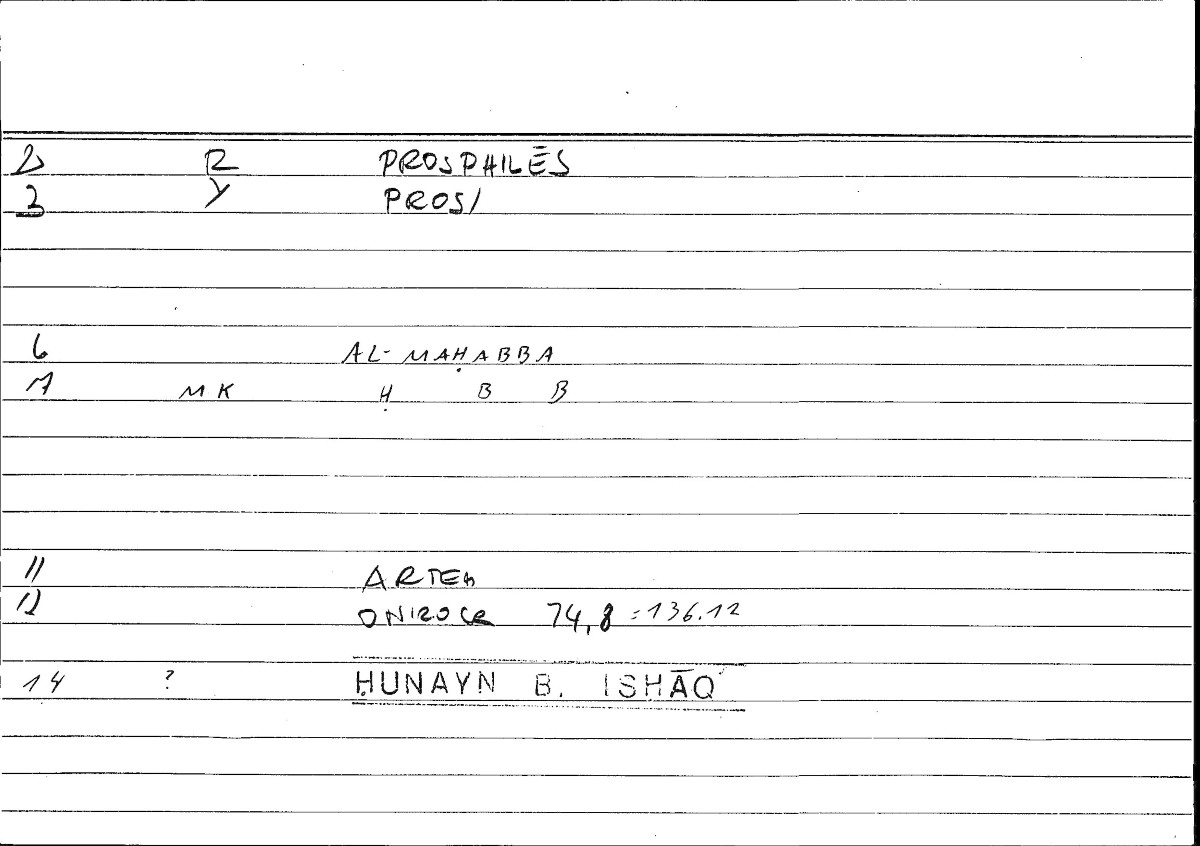 2 R PROSPHILĒS
3 Y PROS/
6 AL-MAḤABBA
7 MK Ḥ B B
11 ARTEM
12 ONIROCR 74,8 = 136.12
14 ? ḤUNAYN B. ISḤĀQ